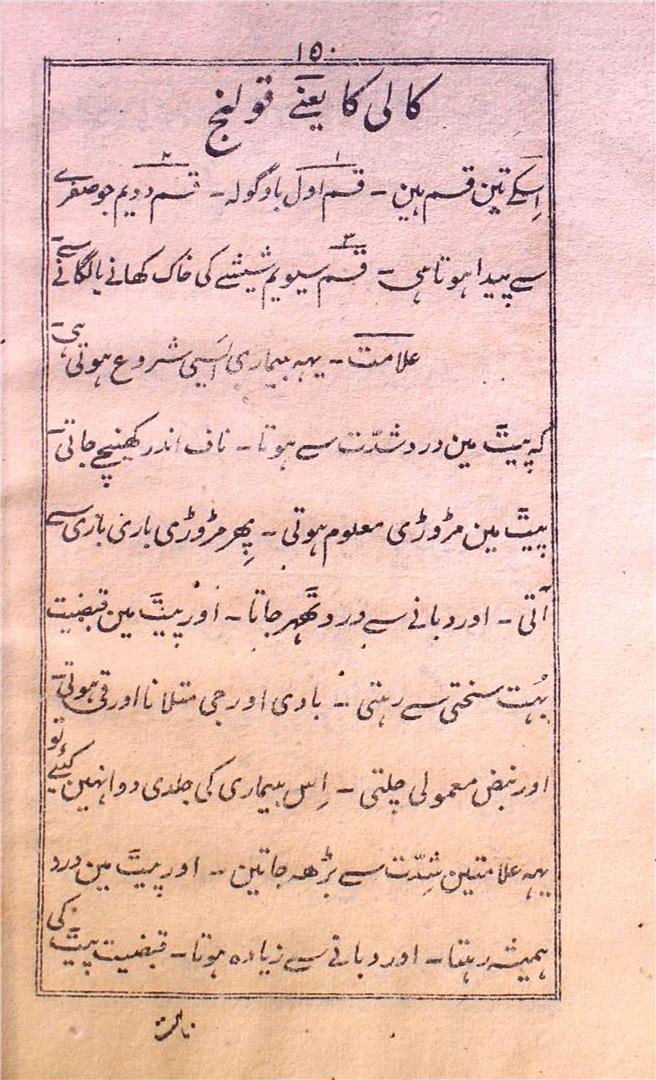 ۱۵۰
کالی کا یعنے قولنج
اِسکے تین قسم ہین ۔ قسم اول باوگولہ ۔ قسم دویم جو صفرے
سے پیدا ہوتا ہی ۔ قسم سیویم شیشے کی خاک کھانے یا لگانے سے
علامت ۔ یہہ بیماری اَیسی شروع ہوتی ہی
کہ پیٹ مین درد شدّت سے ہوتا ۔ ناف اندر کھینچے جاتی
پیٹ مین مڑوڑی معلوم ہوتی ۔ پِھر مڑوڑی باری باری سے
آتی ۔ اور دبانے سے درد ٹھہر جاتا ۔ اور پیٹ مین قبضیت
بہُت سختی سے رہتی ۔ بادی اور جی متلانا اور قی ہوتی
اور نبض معمولی چلتی ۔ اِس بیماری کی جلدی دوا نہین کیٔے تو
یہہ علامتین شِدّت سے بڑھہ جاتین ۔ اور پیٹ مین درد
ہمیشہ رہتا ۔ اور دبانے سے زیادہ ہوتا ۔ قبضیت پیٹ کی